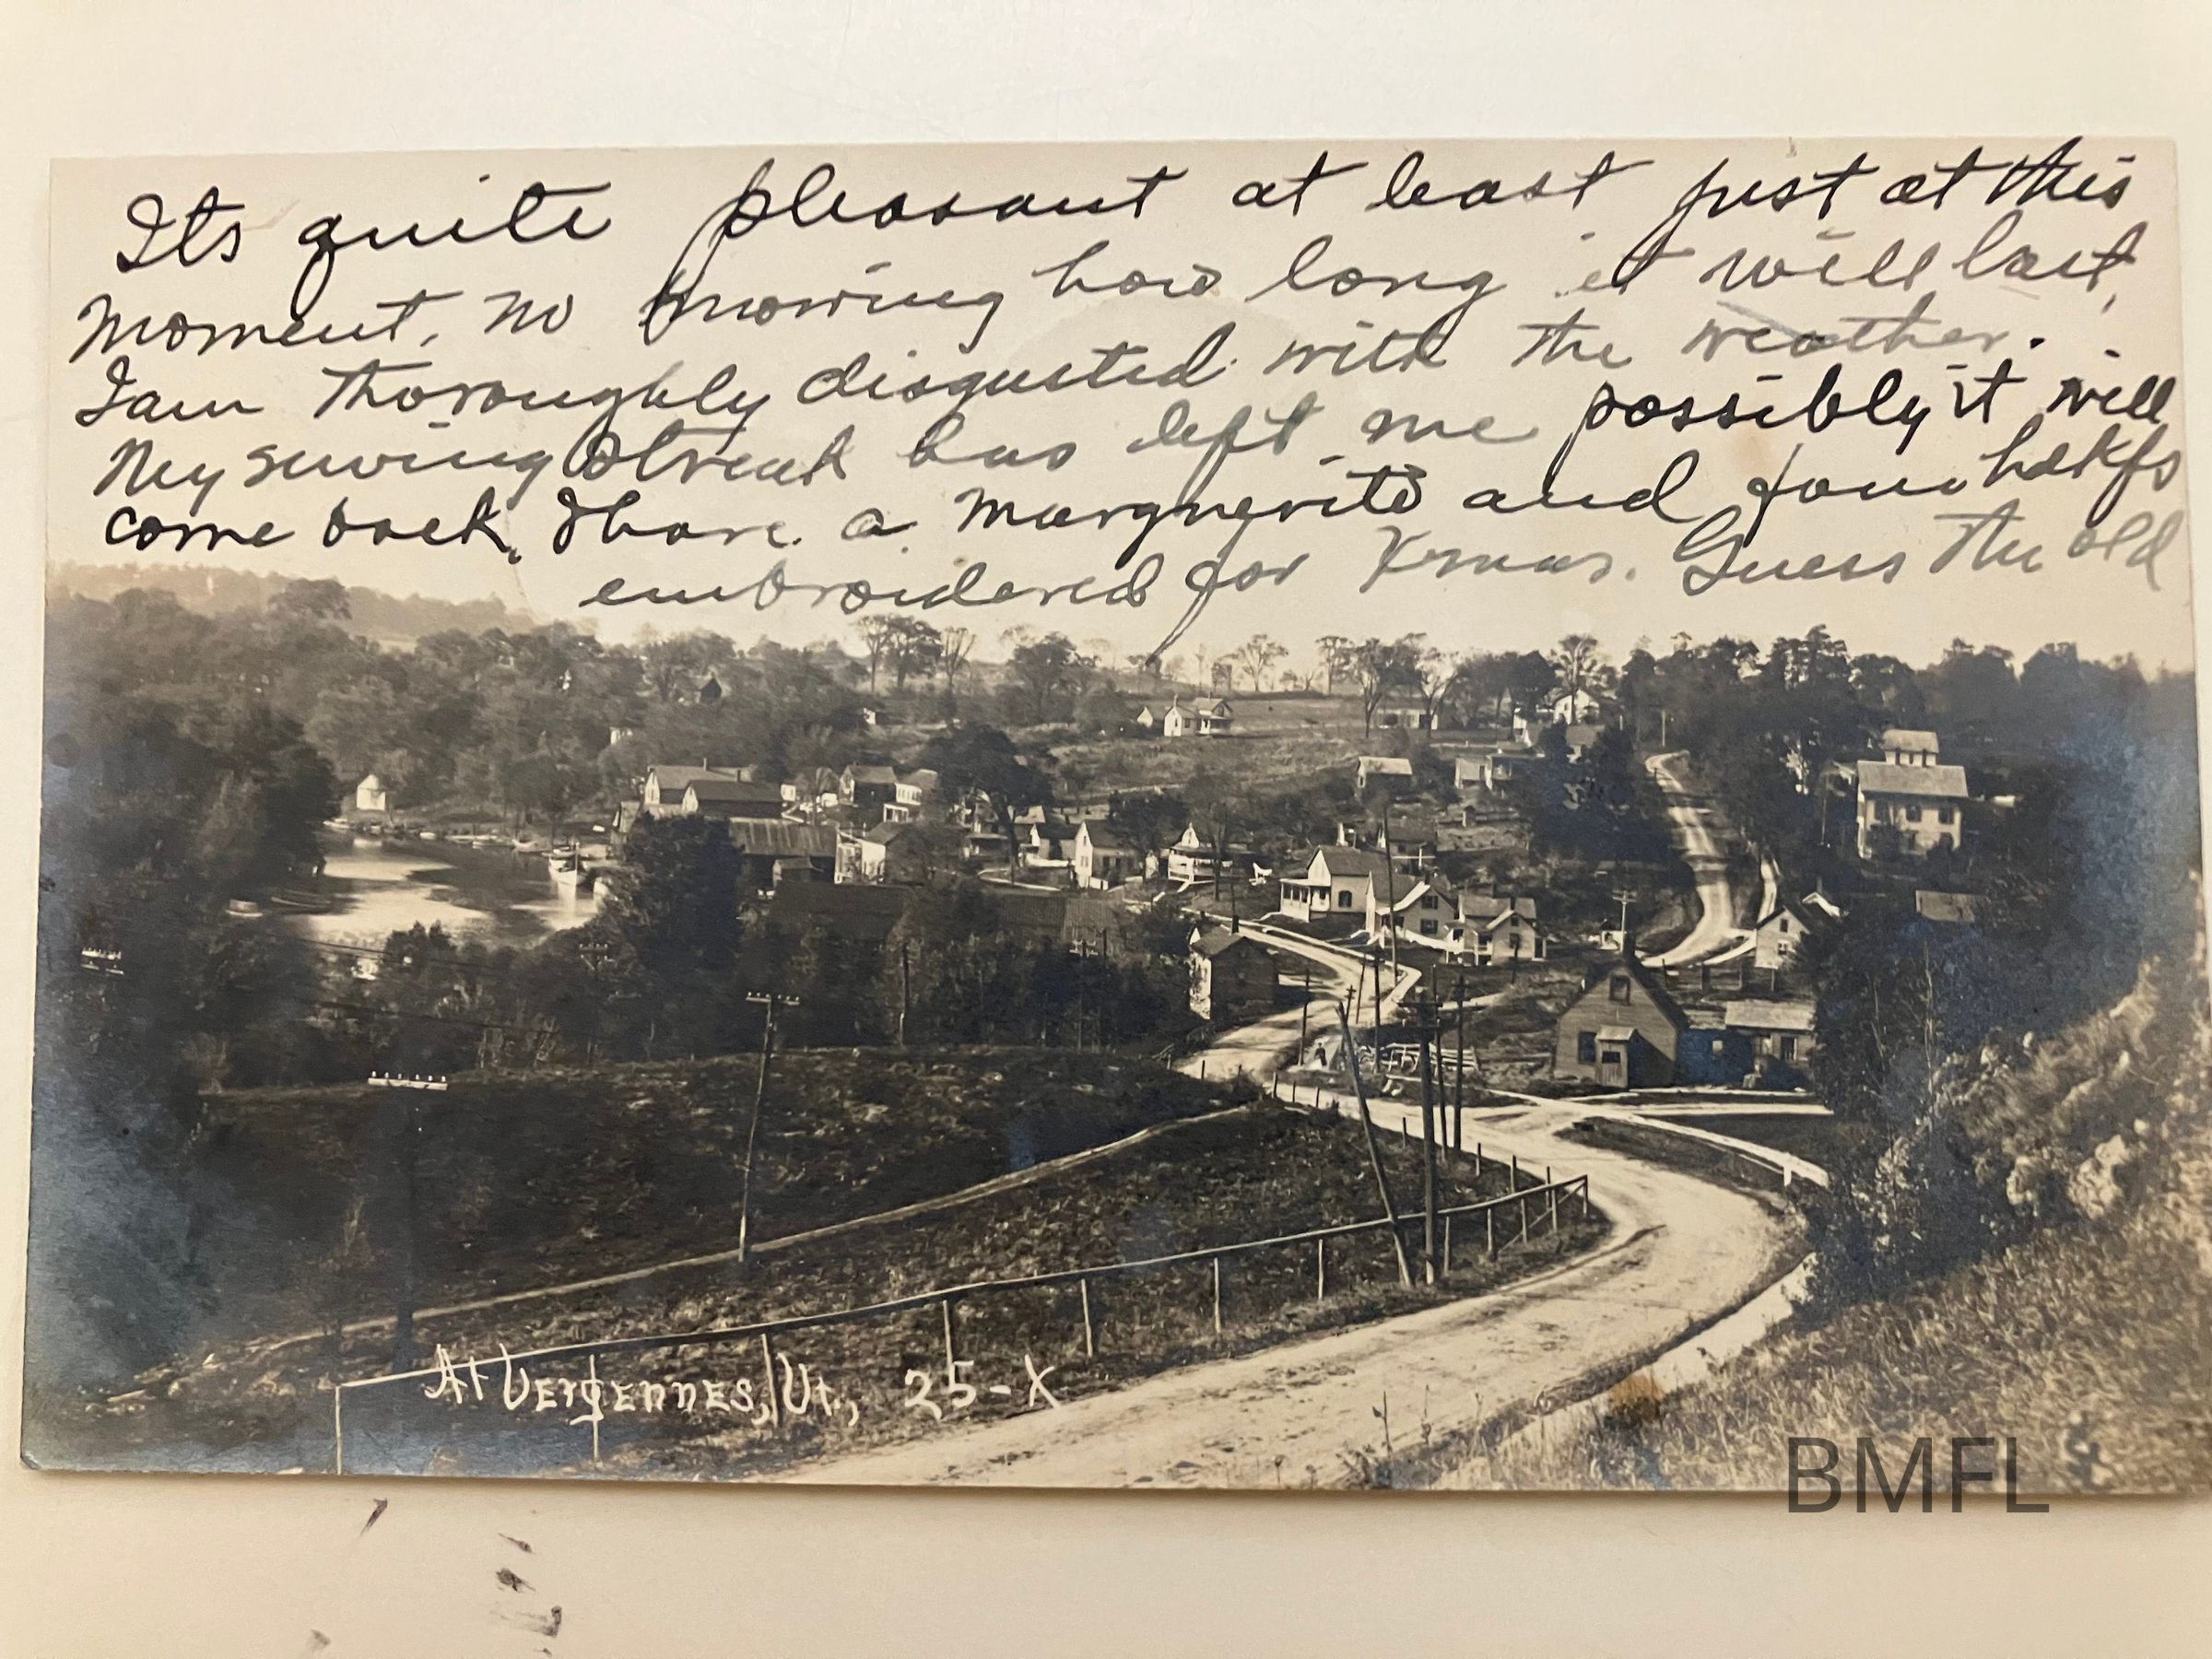 Its quite pleasant at least just at this
moment, no knowing how long it will last,
I am thoroughly disgusted with the weather.
My sewing streak has left me possibly it will
come back, I have a marguerite and four hdkfs
embroidered for Xmas. Guess the old
At Vergennes, Vt., 25-X
BMFL